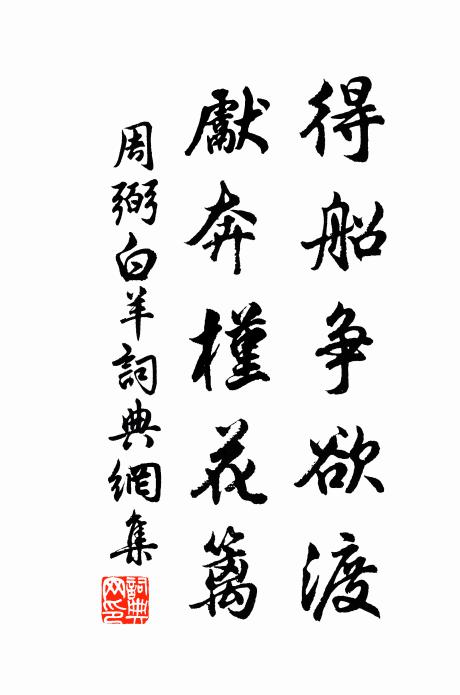 得船争欲渡
獻奔槿花篱
周弼白羊詞典網集
詞典网印